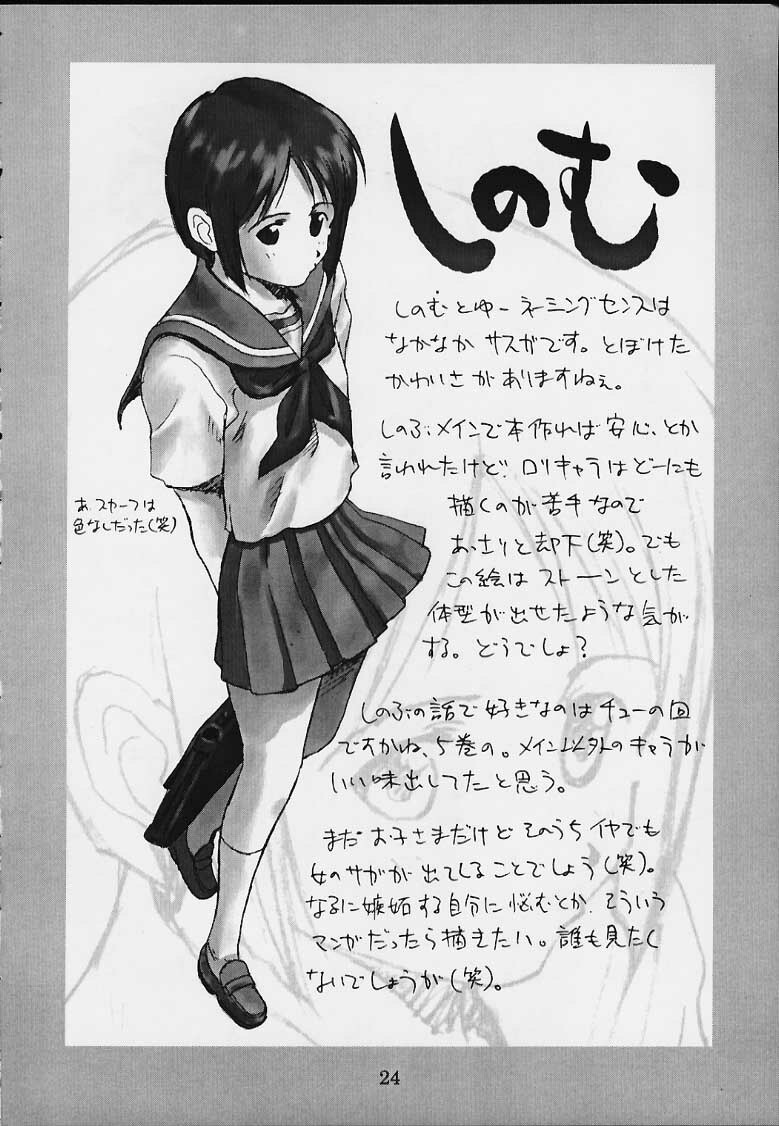 しのむ
しのむとゆーネーミングセンスは
なかなかサスガです。とぼけた
かわいさがありますねぇ。
しのぶメインで本作れば安心、とか
言われたけど、ロリキャラはどーにも
描くのが苦手なので
あっさりと却下(笑)。でも
この絵はストーンとした
体型が出せたような気が
する。どうでしょ?
あ、スカーフは
色なしだった(笑)
しのぶの話で好きなのはチューの回
ですかね、5巻の。メイン以外のキャラが
いい味出してたと思う。
まだお子さまだけどそのうちイヤでも
女のサガが出てしることでしょう(笑)。
なるに嫉妬する自分に悩むとか、そういう
マンガだったら描きたい。誰も見たく
ないでしょうが(笑)。
24